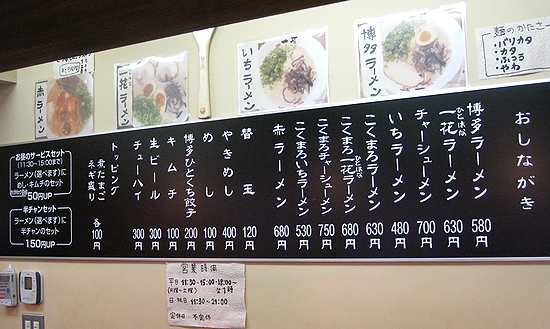 赤ラーメン
一花ラーメン
いちラーメン
博多ラーメン
麺のかたさ
・バリカタ
・カタ
・ふつう
・やわ
おしながき
博多ラーメン 580円
ひとはな
一花ラーメン 630円
チャーシューメン 700円
いちラーメン 480円
こくまろラーメン 630円
ひとはな
こくまろ一花ラーメン 680円
こくまろチャーシューメン 750円
こくまろいちラーメン 530円
赤ラーメン 680円
替玉 120円
やきめし 400円
めし 100円
博多ひとくち餃子 200円
キムチ 100円
生ビール 300円
チューハイ 300円
トッピング
煮たまご
ネギ盛り
各100円
お昼のサービスセット
(11:30~15:00まで)
ラーメン(選べます)に
めし・キムチのセット
50円UP
半チャンセット
ラーメン(選べます)に
半チャンのセット
150円UP
営業時間
平日 11:30-15:00・18:00~
(月曜~土曜) 翌1時
日・祝日 11:30~21:00
定休日・不定休